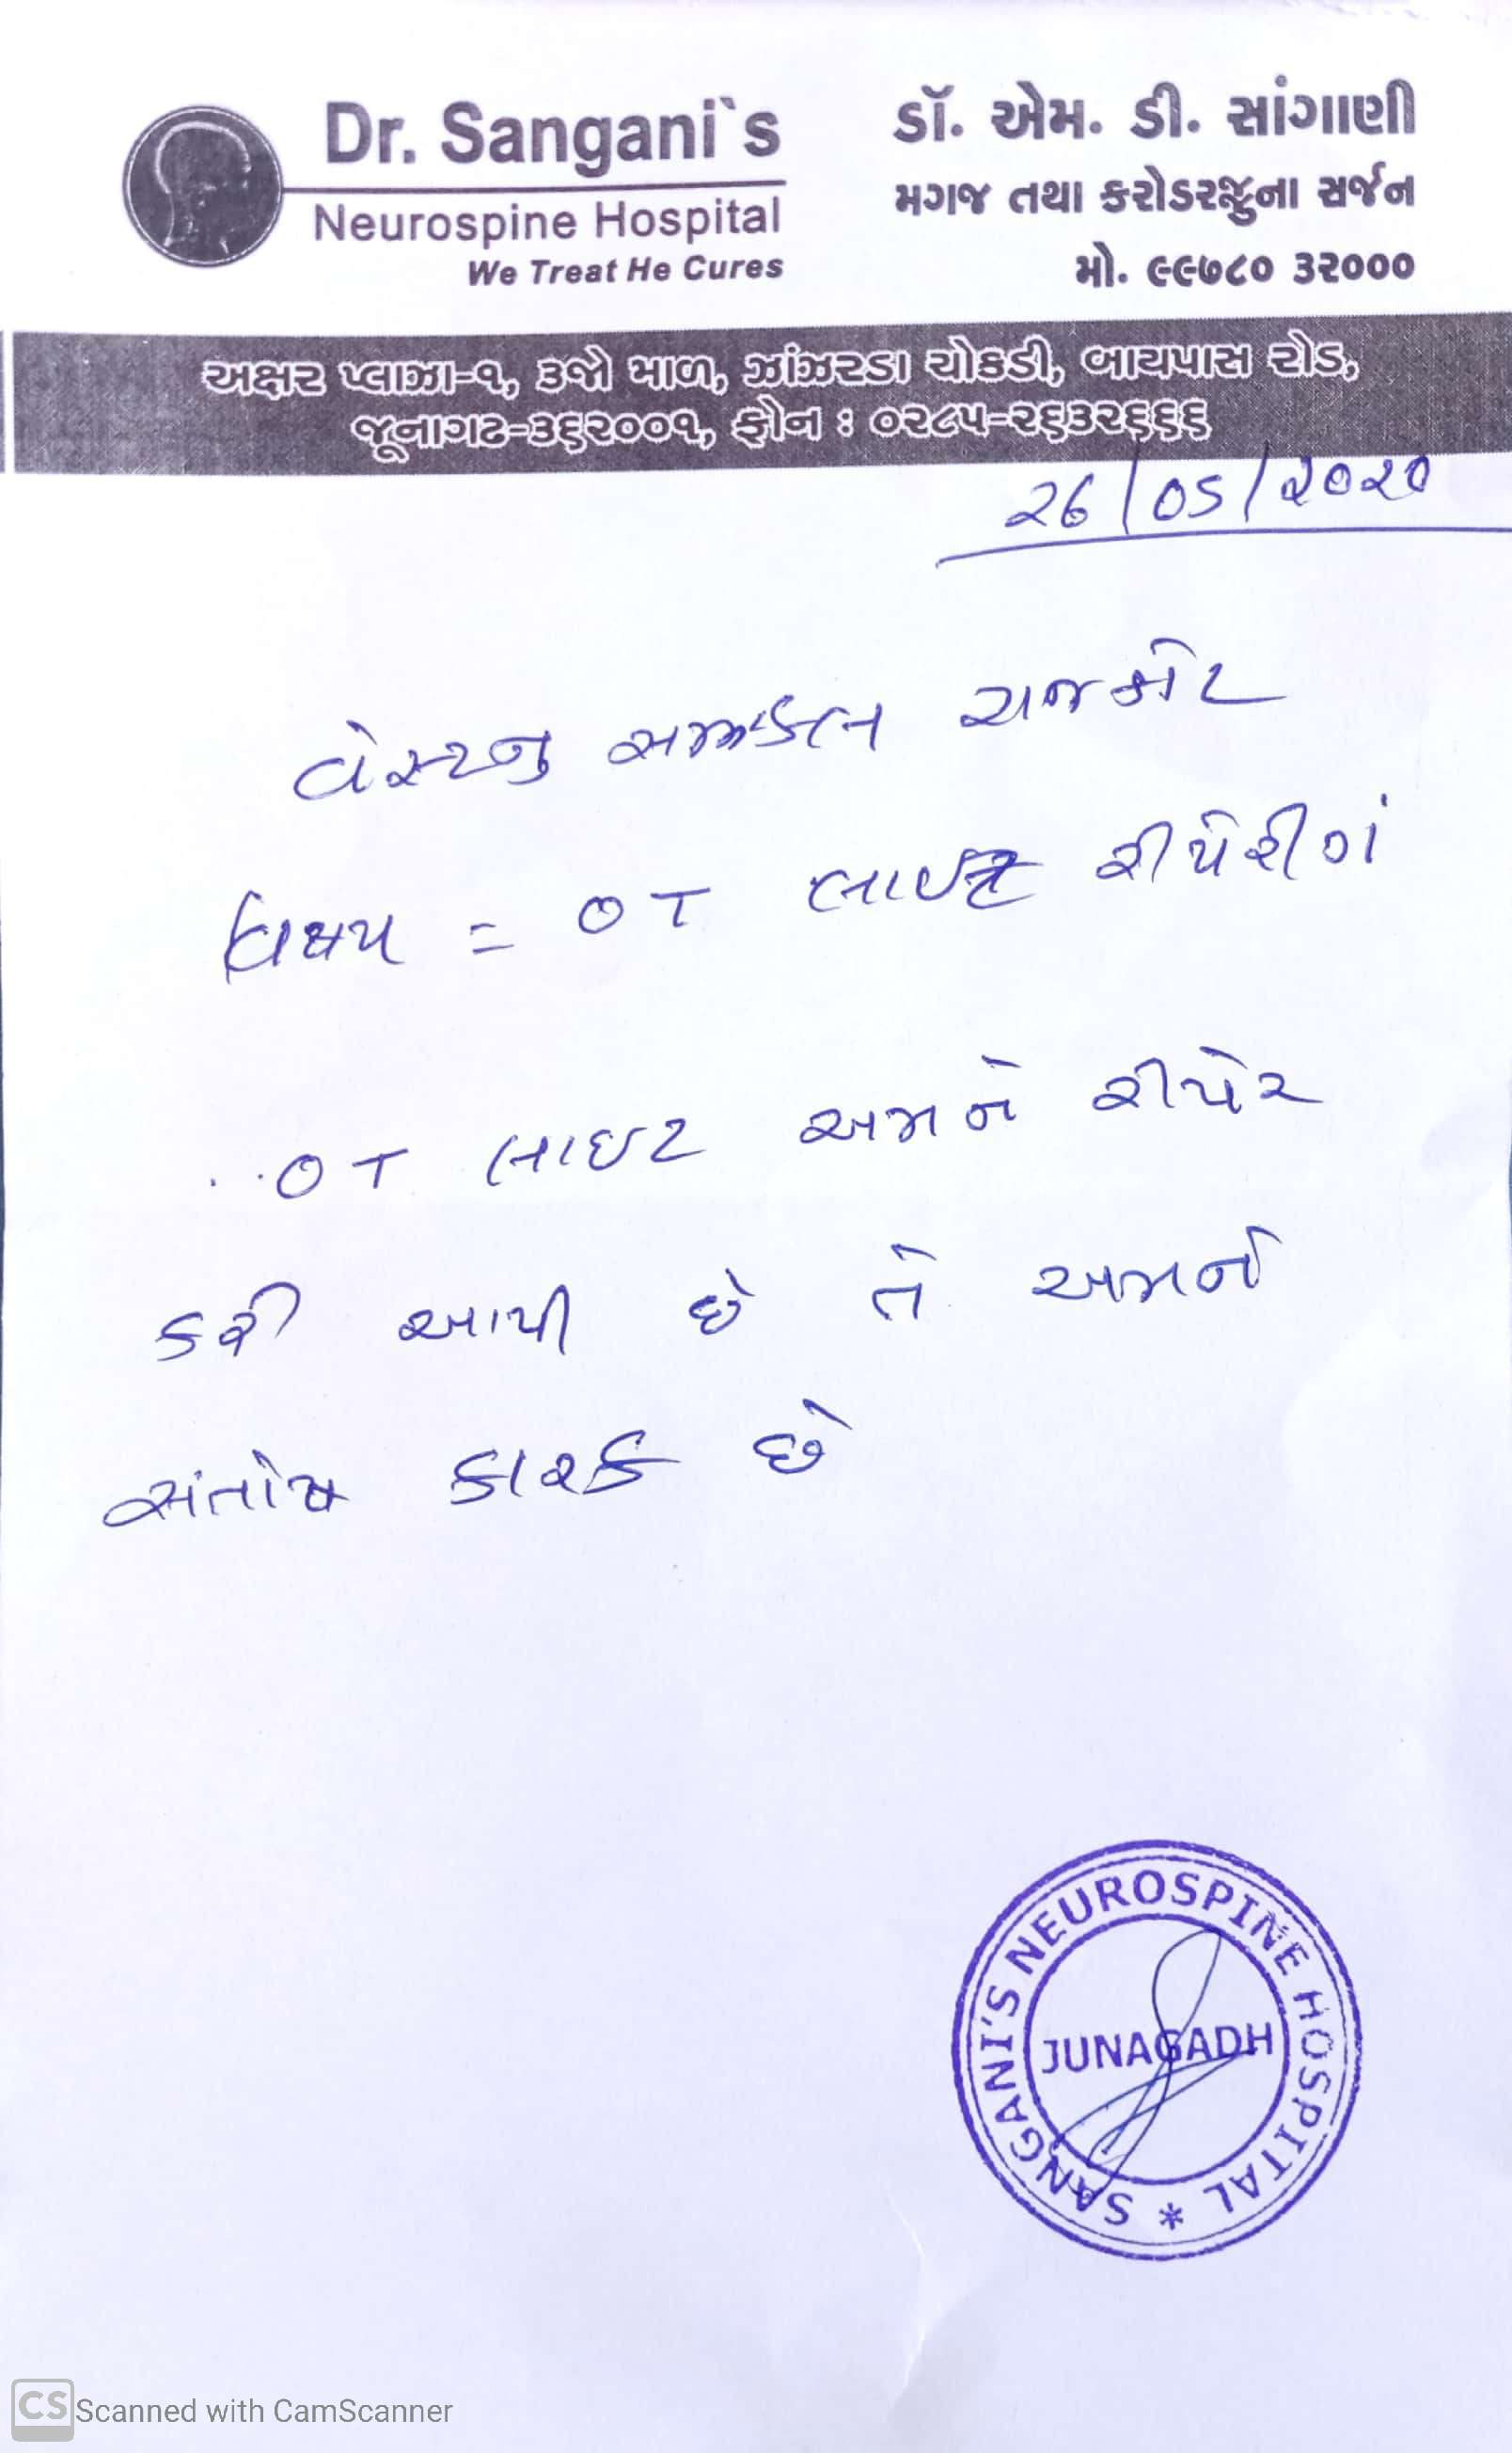 Dr. Sangani`s
Neurospine Hospital
We Treat He Cures
ડૉ. એમ. ડી. સાંગાણી
મગજ તથા કરોડરજ્જુના સર્જન
મો. ૯૯૭૮૦ ૩૨૦૦૦
અક્ષર પ્લાઝા-૧, ૩જો માળ, ઝાંઝરડા ચોકડી, બાયપાસ રોડ,
જૂનાગઢ-૩૬૨૦૦૧, ફોન : ૦૨૮૫-૨૬૩૨૬૬૬
26/05/2020
રાજકોટ
વિષય = OT લાઇટ રીપેરીગં
OT લાઇટ અમને રીપેર
કરી આપી છે તે અમને
સંતોષ કારક છે
SANGANI'S NEUROSPINE HOSPITAL *
JUNAGADH
CS Scanned with CamScanner